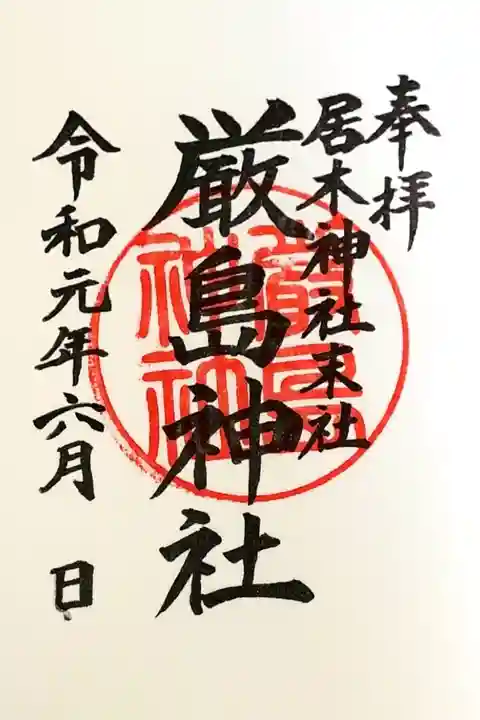 奉拝
居木神社末社
厳島神社
令和元年六月 日